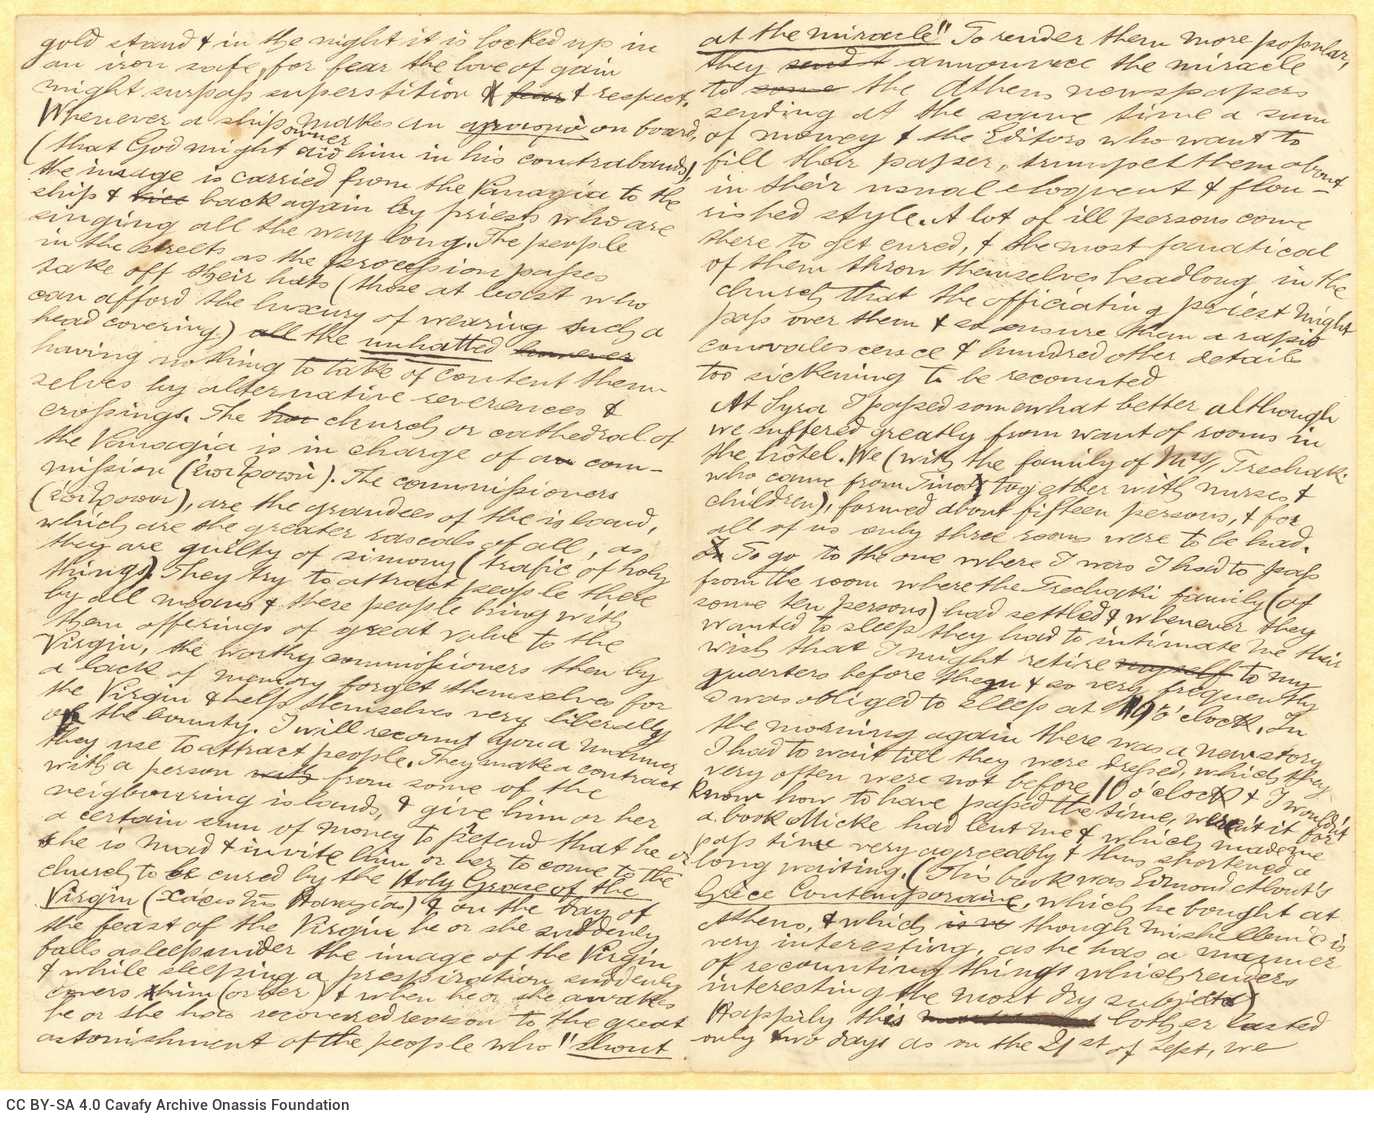 gold stand & in the night it is locked up in
an iron safe, for fear the love of gain
might surpass superstition & fear & respect.
Whenever a ship makes an αγιασμό on board,
(that God might aid him in his contrabands)
owner
the image is carried from the Panagia to the
ship & vice back again by priests who are
singing all the way long. The people
in the streets as the procession passes
take off their hats (those at least who
can afford the luxury of wearing such a
head covering) all the unhatted however
having nothing to take off content them-
selves by alternative reverences &
crossings. The church or cathedral of
the Panagia is in charge of a com-
mission (επιτροπή). The commissioners
(επίτροποι), are the grandees of the island,
which are the greater rascals of all, as
they are guilty of simony (trafic of holy
things). They try to attract people there
by all means & these people bring with
them offerings of great value to the
Virgin, the worthy commissioners then by
a lack of memory forget themselves for
the Virgin & help themselves very liberally
of the bounty. I will recount you a manner
they use to attract people. They make a contract
with a person with from some of the
neigbouring islands, & give him or her
a certain sum of money to pretend that he or
she is mad & invite him or her to come to the
church to be cured by the Holy Grace of the
Virgin (χάρις της Παναγίας) & on the day of
the feast of the Virgin he or she suddenly
falls asleep under the image of the Virgin
& while sleeping a prespiration suddenly
covers him (or her) & when he or she awakes
he or she has recovered reason to the great
astonishment of the people who "shout
at the miracle" To render them more popular,
they send t announce the miracle
to some the Athens newspapers
sending at the same time a sum
of money & the Editors who want to
fill their paper, trumpet them about
in their usual eloquent & flou-
rished style. A lot of ill persons come
there to get cured, & the most fanatical
of them throw themselves headlong in the
church that the officiating priest might
pass over them & so ensure them a rapid
convalescence & hundred other details
too sickening to be recounted
At Syra I passed somewhat better although
we suffered greatly from want of rooms in
the hotel. We (with the family of Mrs Frechaki
who came from Tinos together with nurses &
children), formed about fifteen persons, & for
all of us only three rooms were to be had.
To go to the one where I was I had to pass
from the room where the Frechaki family (of
some ten persons) had settled & whenever they
wanted to sleep they had to intimate me their
wish that I might retire myself to my
quarters before them & so very frequently
I was obliged to sleep at 9 o'clock. In
the morning again there was a new story
I had to wait till they were dressed, which they
very often were not before 10 o'clock & I wouldn't
know how to have passed the time, weren't it for
a book Micke had lent me & which made me
pass time very agreeably & thus shortened a
long waiting. (This book was Edmond About's
Grèce Contemporaine, which he bought at
Athens, & which is ve though mishellenic is
very interesting, as he has a manner
of recounting things which renders
interesting the most dry subjects)
Happily this bother lasted
only two days as on the 21st of Sept, we
CC BY-SA 4.0 Cavafy Archive Onassis Foundation